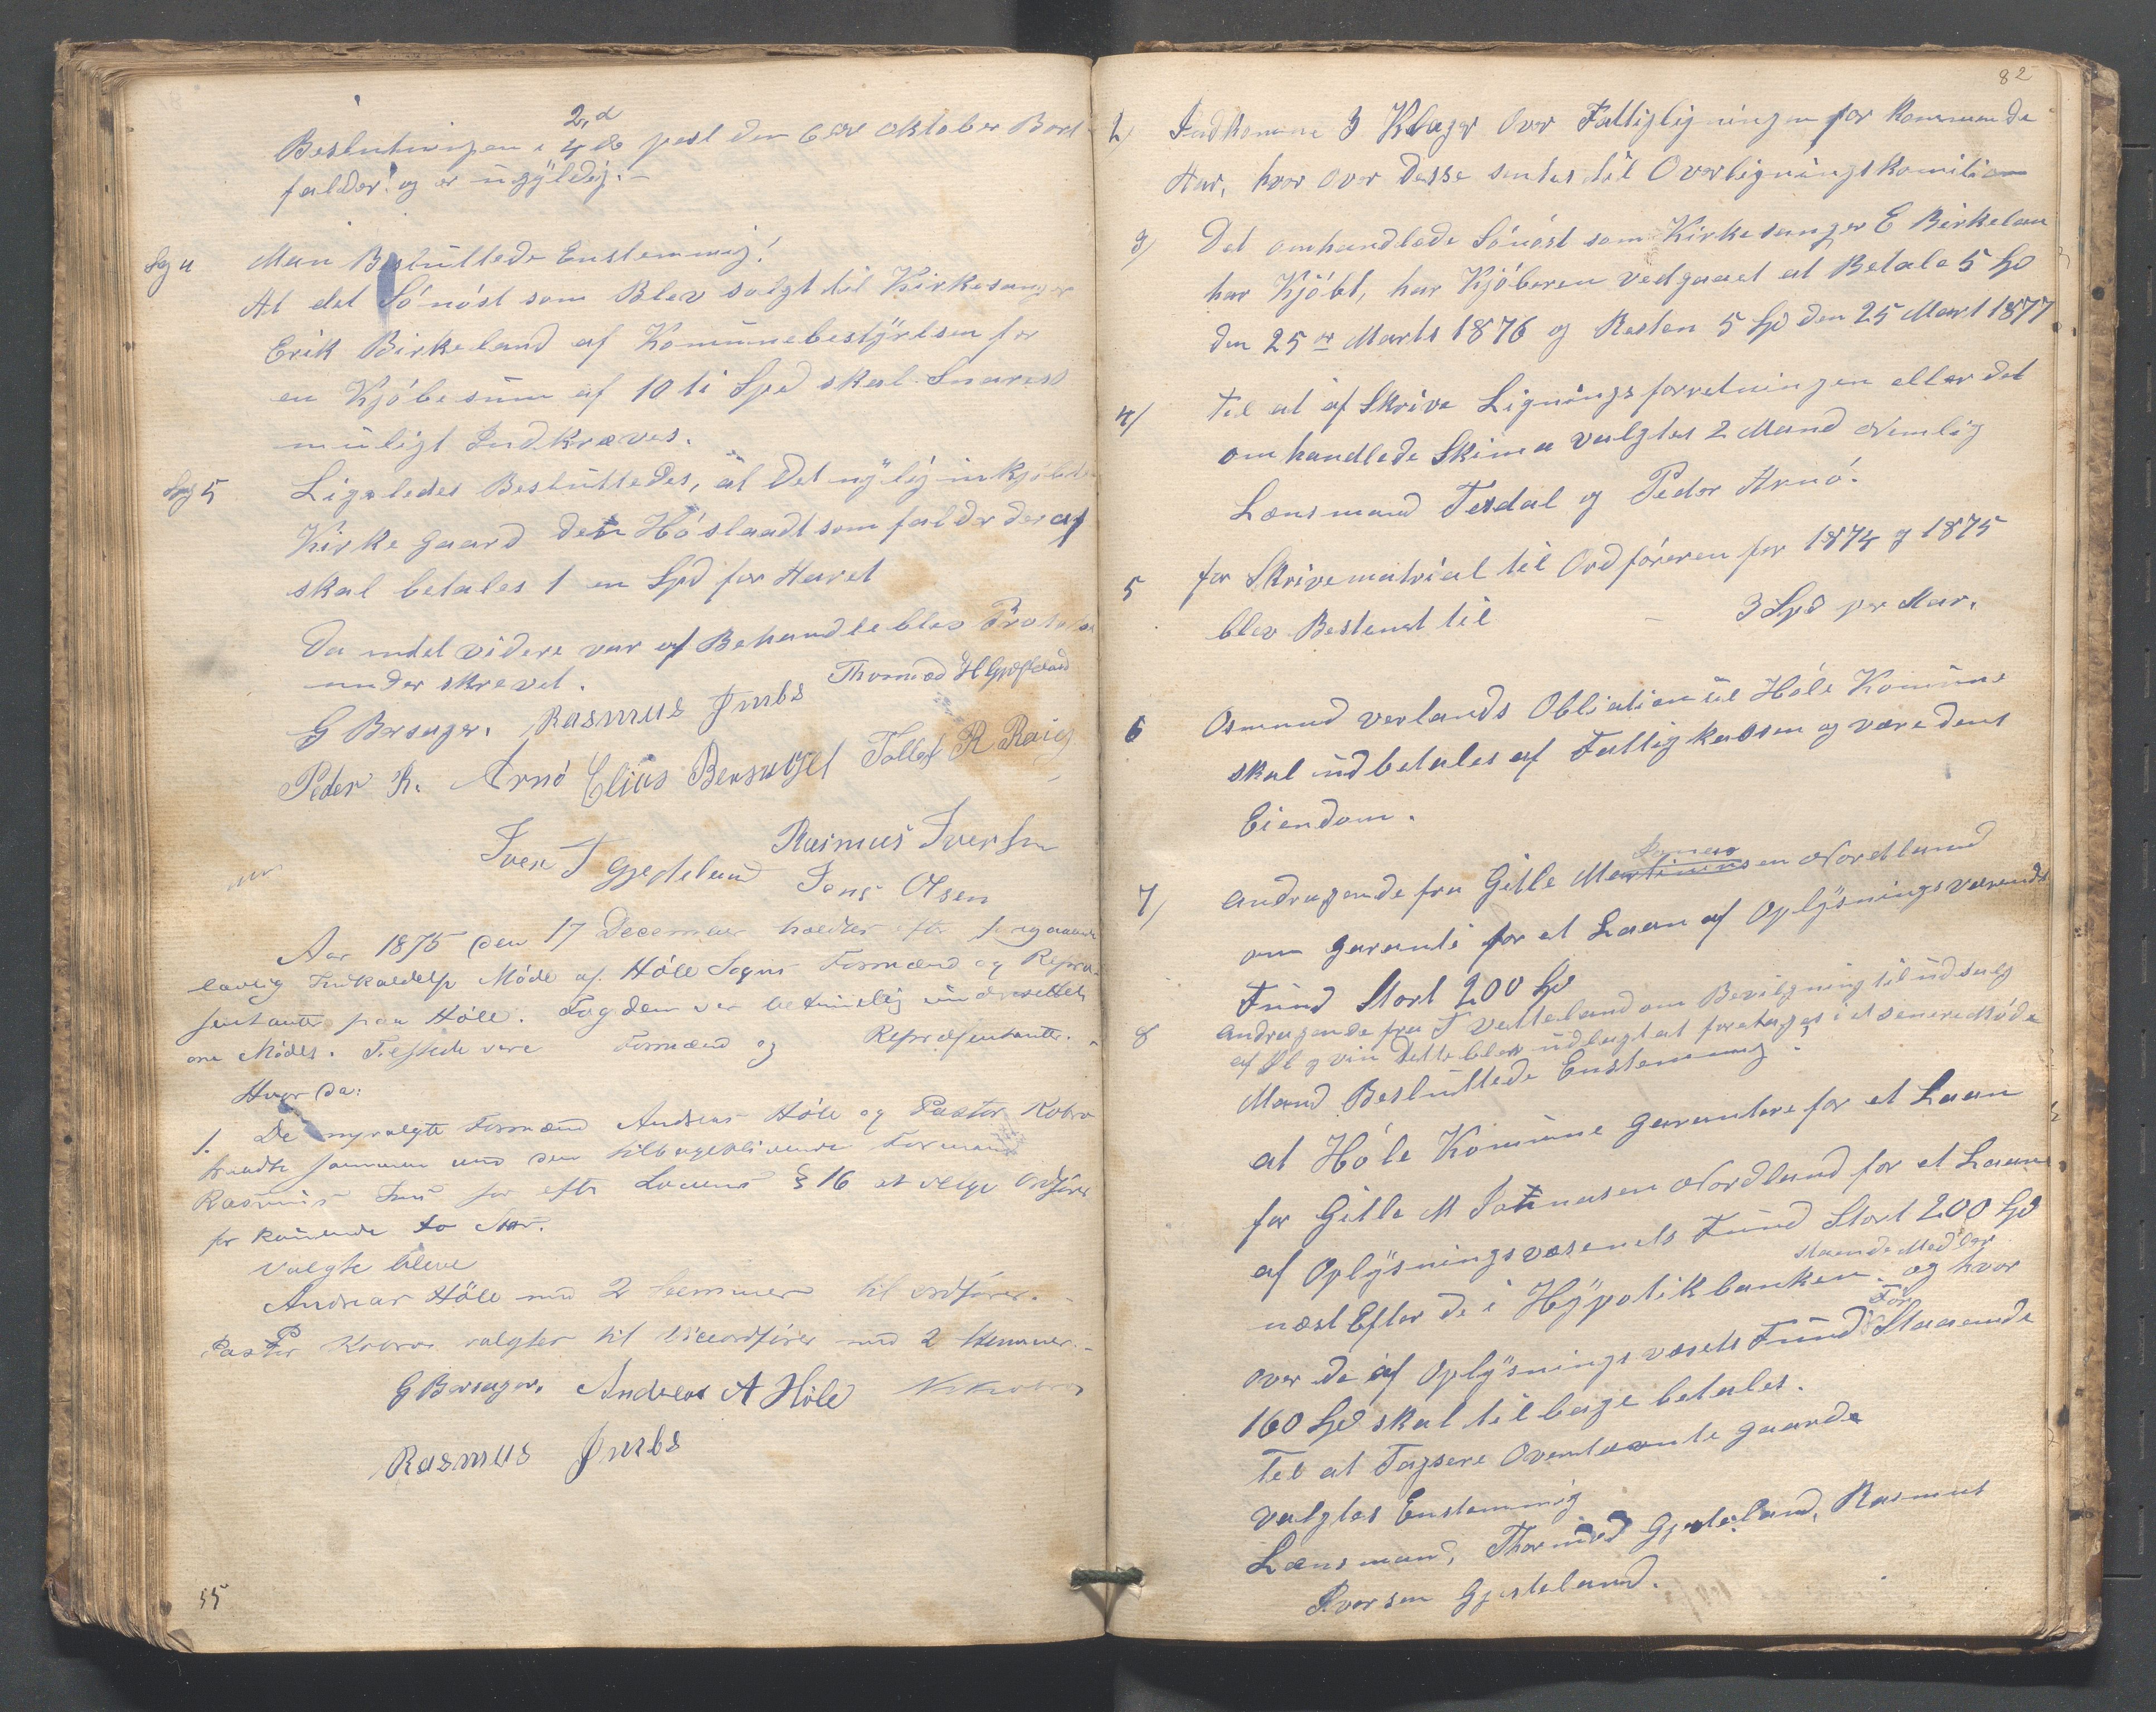 2,d
Beslutningen i 4de post den 6te oktober Bort
falder! og er ugyldig.-
Sag 4 Man Besluttede Enstemmig!
At det Sónóst som Blev solgt til Kirkesanger
Erik Birkeland af Komunebestyrelsen for
en Kjóbesum af 10 ti Spd skal Snarest
muligt Indkræves.
Sag 5 Ligeledes Besluttedes, at Det nylig inkjóbte
Kirkegaard den Hóslaadt som falder deraf
skal betales 1 en Spd for Aaret
Da intet videre var af Behandle blev
underskrevet.
G Bersager. Rasmus Imbs Thormod H Gjesteland
Peder R. Arnó Elias Bersaget Tollef R Raig
Iver T Gjesteland Rasmus Iversen
Jens Olsen
Aar 1875 den 17 December holdtes efter foregaaende
lovlig Indkaldelse Móde af Hóle Sogns Formænd og Repræ-
sentanter paa Hóle. Fogden var betimelig underrettet
om Módet. Tilstede vare Formænd og Repræsentanter.
Hvor da:
1. De nyvalgte Formænd Andreas Hóle og Pastor Kobro
traadte sammen med den tilbageblivende Formand
Rasmus Ims for efter Lovens § 16 at vælge Ordfórer
for kommende to Aar.
Valgte bleve
Andreas Hóle med 2 Stemmer til ordfórer.-
Pastor Kobro valgtes til Viceordfórer med 2 Stemmer.-
G Bersager. Andreas A Hóle Kobro
Rasmus Imbs
55
82
2) Indkomne 3 Klager Over Fattigligningen for Kommende
Aar, hvor over Desse sendes til Overligningskomition
3) Det omhandlede Sónóst som Kirkesanger E Birkelan
har Kjóbt, har Kjóberen vedgaaet at Betale 5 Sp
den 25 de Marts 1876 og Resten 5 Sp den 25 Mart 1877
4) Til at af Skrive Ligningsforretningen eller det
omhandlede Skima valgtes 2 Mand Nemlig
Lensmand Tesdal og Peder Arnó.
5 for Skrivematrial til Ordfóreren for 1874 og 1875
blev Bestemt til - 3 Spd per Aar.
6 Osmund Verlands Obliation til Hóle Komune
skal udbetales af Fattigkassen og være dens
Eiendom.
7) Andragende fra Gitle Martinussen Nordland
om garanti for et Laan af Oplysningsvæsends
Fund Stort 200 Sp
8 Andragende fra T Vatteland om Bevilgning til udsalg
af Øl og vin Dette blev udlagt at foretages i et senere Móde
Mand Besluttede Enstemmig!
at Hóle Komune garantere for et Laan
for Gitle M Jonnasen Nordland for et Laan
af Oplysningsvæsenets Fund Stort 200 Sp
staende Med Der
næst Efter de i Hypotikbanken. og hvor
For
over de af Oplysnings væsets Fund Staaende
160 Sp skal tilbage betales.
Til at Taxere Ovennævnte gaarde
valgtes Enstemmig
Lænsmand, Thormod Gjesteland, Rasmus
Iversen Gjesteland.